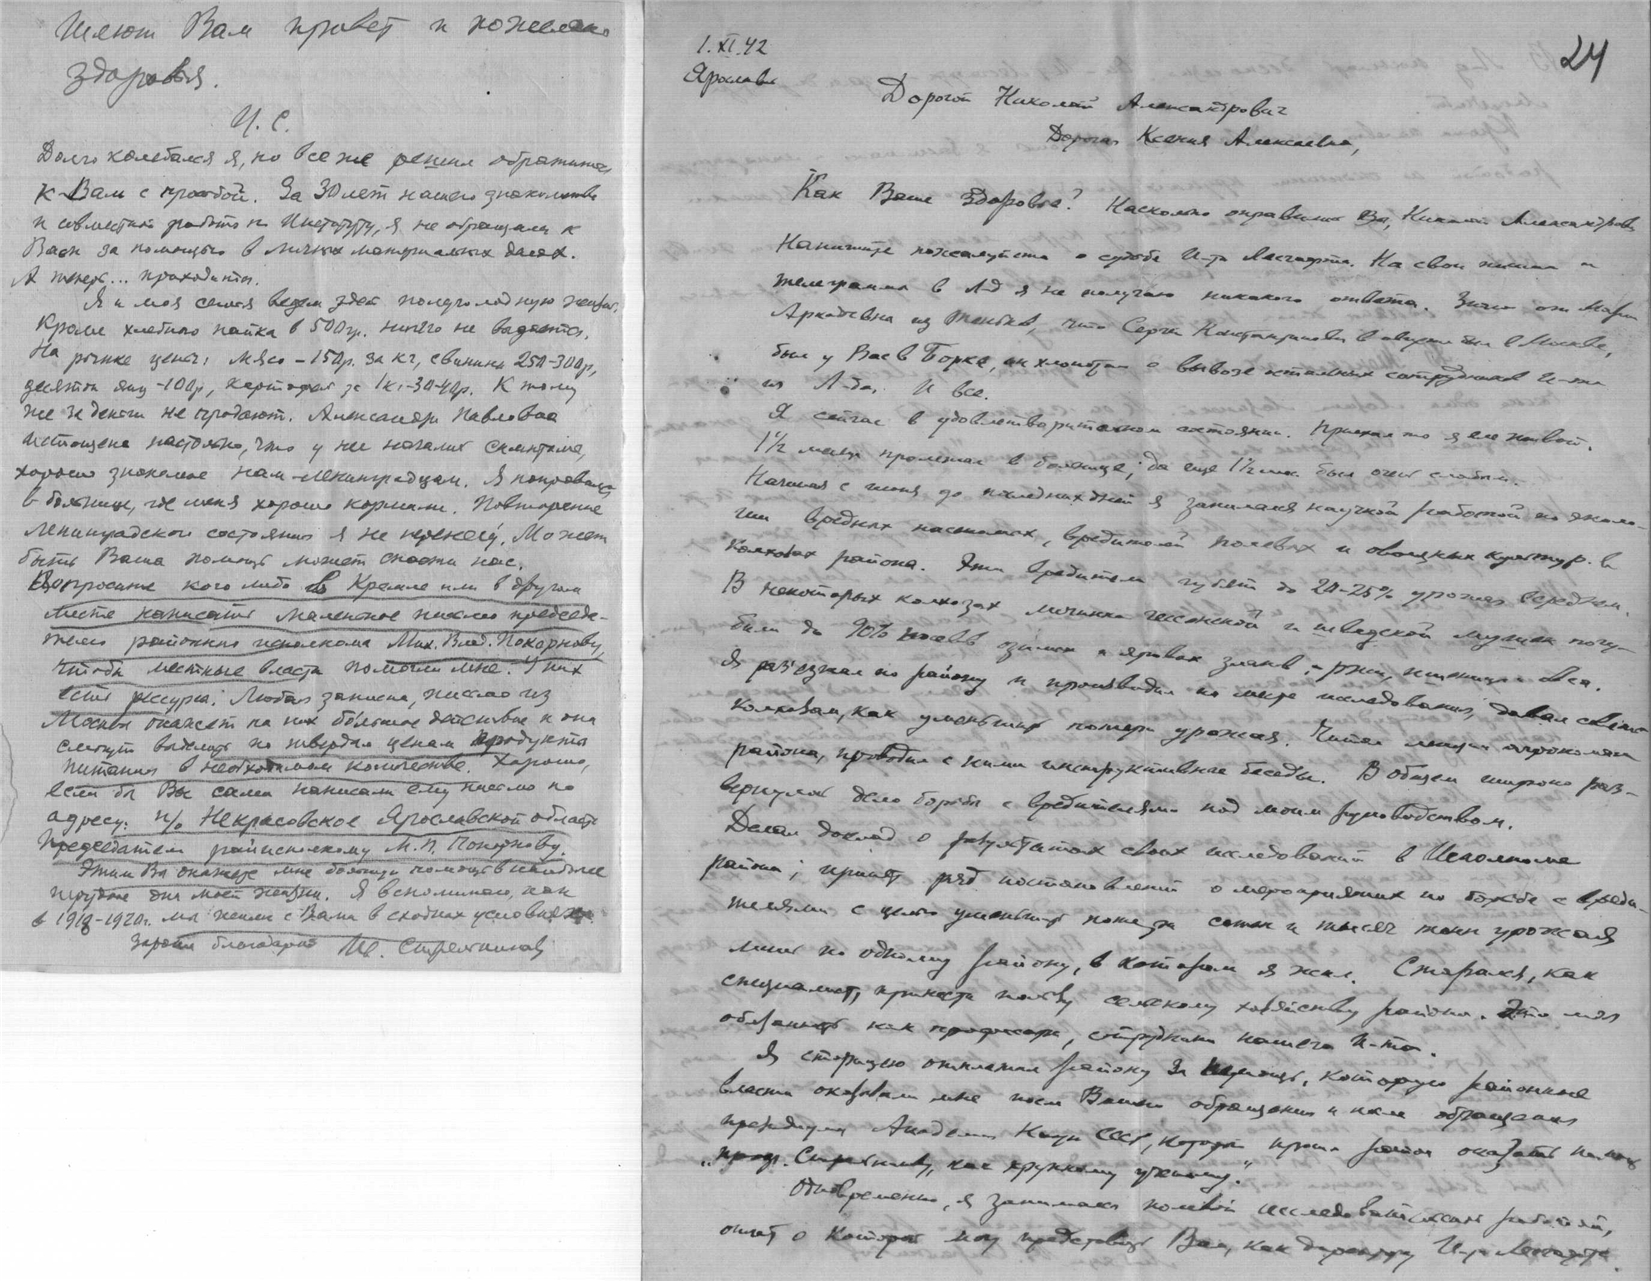 Шлют Вам привет и пожелания
здоровья.
И. С.
Долго колебался я, но все же решил обратиться
к Вам с просьбой. За 30 лет нашего знакомства
и совместной работы по Институту, я не обращался к
Вам за помощью в личных материальных делах.
А теперь... приходится.
Я и моя семья ведем здесь полуголодную жизнь.
Кроме хлебного пайка в 500 гр. ничего не выдается.
На рынке цены: мясо - 150р. за кг, свинина 250-300р,
десяток яиц - 100р, картофель за 1кг - 30-40р. К тому
же за деньги не продают. Александра Павловна
истощена настолько, что у нее начались симптомы,
хорошо знакомые нам - ленинградцам. Я поправился
в больнице, где меня хорошо кормили. Повторение
ленинградского состояния я не перенесу. Может
быть Ваша помощь может спасти нас.
Попросите кого либо в Кремле или в другом
месте написать маленькое письмо председа-
телю районного исполкома Мих. Влад. Покорнову,
чтобы местные власти помогли мне. У них
есть ресурсы. Любая записка, письмо из
Москвы окажет на них большое действие и они
смогут выделить по твердым ценам продукты
питания в необходимом количестве. Хорошо,
если бы Вы сами написали ему письмо по
адресу: п/о Некрасовское Ярославской области
Председателю райисполкому М. В.
Этим Вы окажете мне большую помощь в наиболее
трудные дни моей жизни. Я вспоминаю, как
в 1918-1920г. мы жили с Вами в сходных условиях.
Заранее благодарный Ив. Стрельников
24
1.XI.42
Ярославль
Дорогой Николай Александрович
Дорогая Ксения Алексеевна,
Как Ваше здоровье? Насколько оправились Вы, Николай Александрович
Напишите пожалуйста о судьбе И-та Лесгафта. На свои письма и
телеграммы в Л-д я не получаю никакого ответа. Знаю от Марии
Аркадьевны из Тюбков, что Сергей Константинович в августе был в Москве,
был у Вас в Борке, он хлопотал о вывозе остальных сотрудников И-та
из Л-да. И все.
Я сейчас в удовлетворительном состоянии. Приехал то я еле живой.
1½ месяца пролежал в больнице; да еще 1½ мес. был очень слабым.
Начиная с июня до последних дней я занимался научной работой по эколо-
гии вредных насекомых, вредителей полевых и овощных культур в
колхозах района. Эти вредители губят до 20-25% урожая в среднем.
В некоторых колхозах личинки гессенской и шведской мушек погу-
били до 90% посевов озимых и яровых злаков: ржи, пшеницы и овса.
Я разъезжал по району и производил на месте исследования, давал советы
колхозам, как уменьшить потери урожая. Читал лекции агрономам
района, проводил с ними инструктивные беседы. В общем широко раз-
вернулось дело борьбы с вредителями под моим руководством.
Делал доклад о результатах своих исследований в Исполкоме
района; принят ряд постановлений о мероприятиях по борьбе с вреди-
телями с целью уменьшить потери сотен и тысяч тонн урожая
лишь по одному району, в котором я жил. Старался, как
специалист, принести пользу сельскому хозяйству района. Это моя
обязанность как профессора, сотрудника нашего И-та.
Я сторицею отплатил району за помощь, которую районные
власти оказывали мне после Вашего обращения и после обращения
президиума Академии Наук СССР, который просил район оказать помощь
„проф. Стрельникову, как крупному ученому".
Одновременно, я занимался полевой исследовательской работой,
отчет о которой могу представить Вам, как директору И-та Лесгафта.